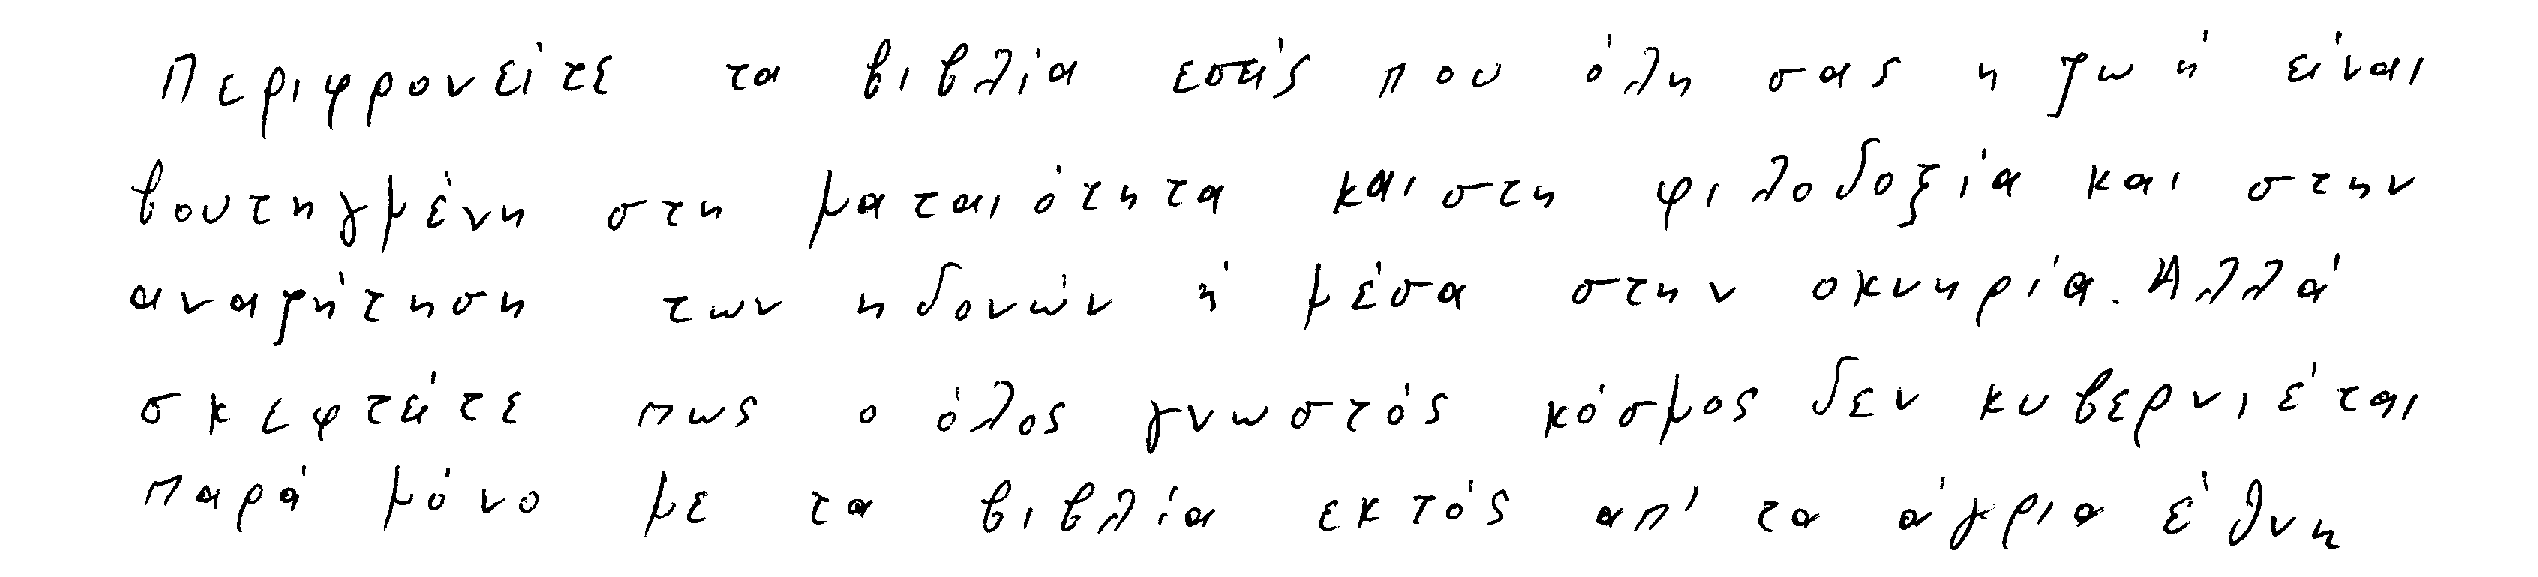 Περιφρονείτε τα βιβλία εσείς που όλη σας η ζωή είναι
βουτηγμένη στη ματαιότητα και στη φιλοδοξία και στην
αναζήτηση των ηδονών ή μέσα στην οκνηρία. Αλλά
σκεφτείτε πως ο όλος γνωστός κόσμος δεν κυβερνιέται
παρά μόνο με τα βιβλία εκτός απ' τα άγρια έθνη